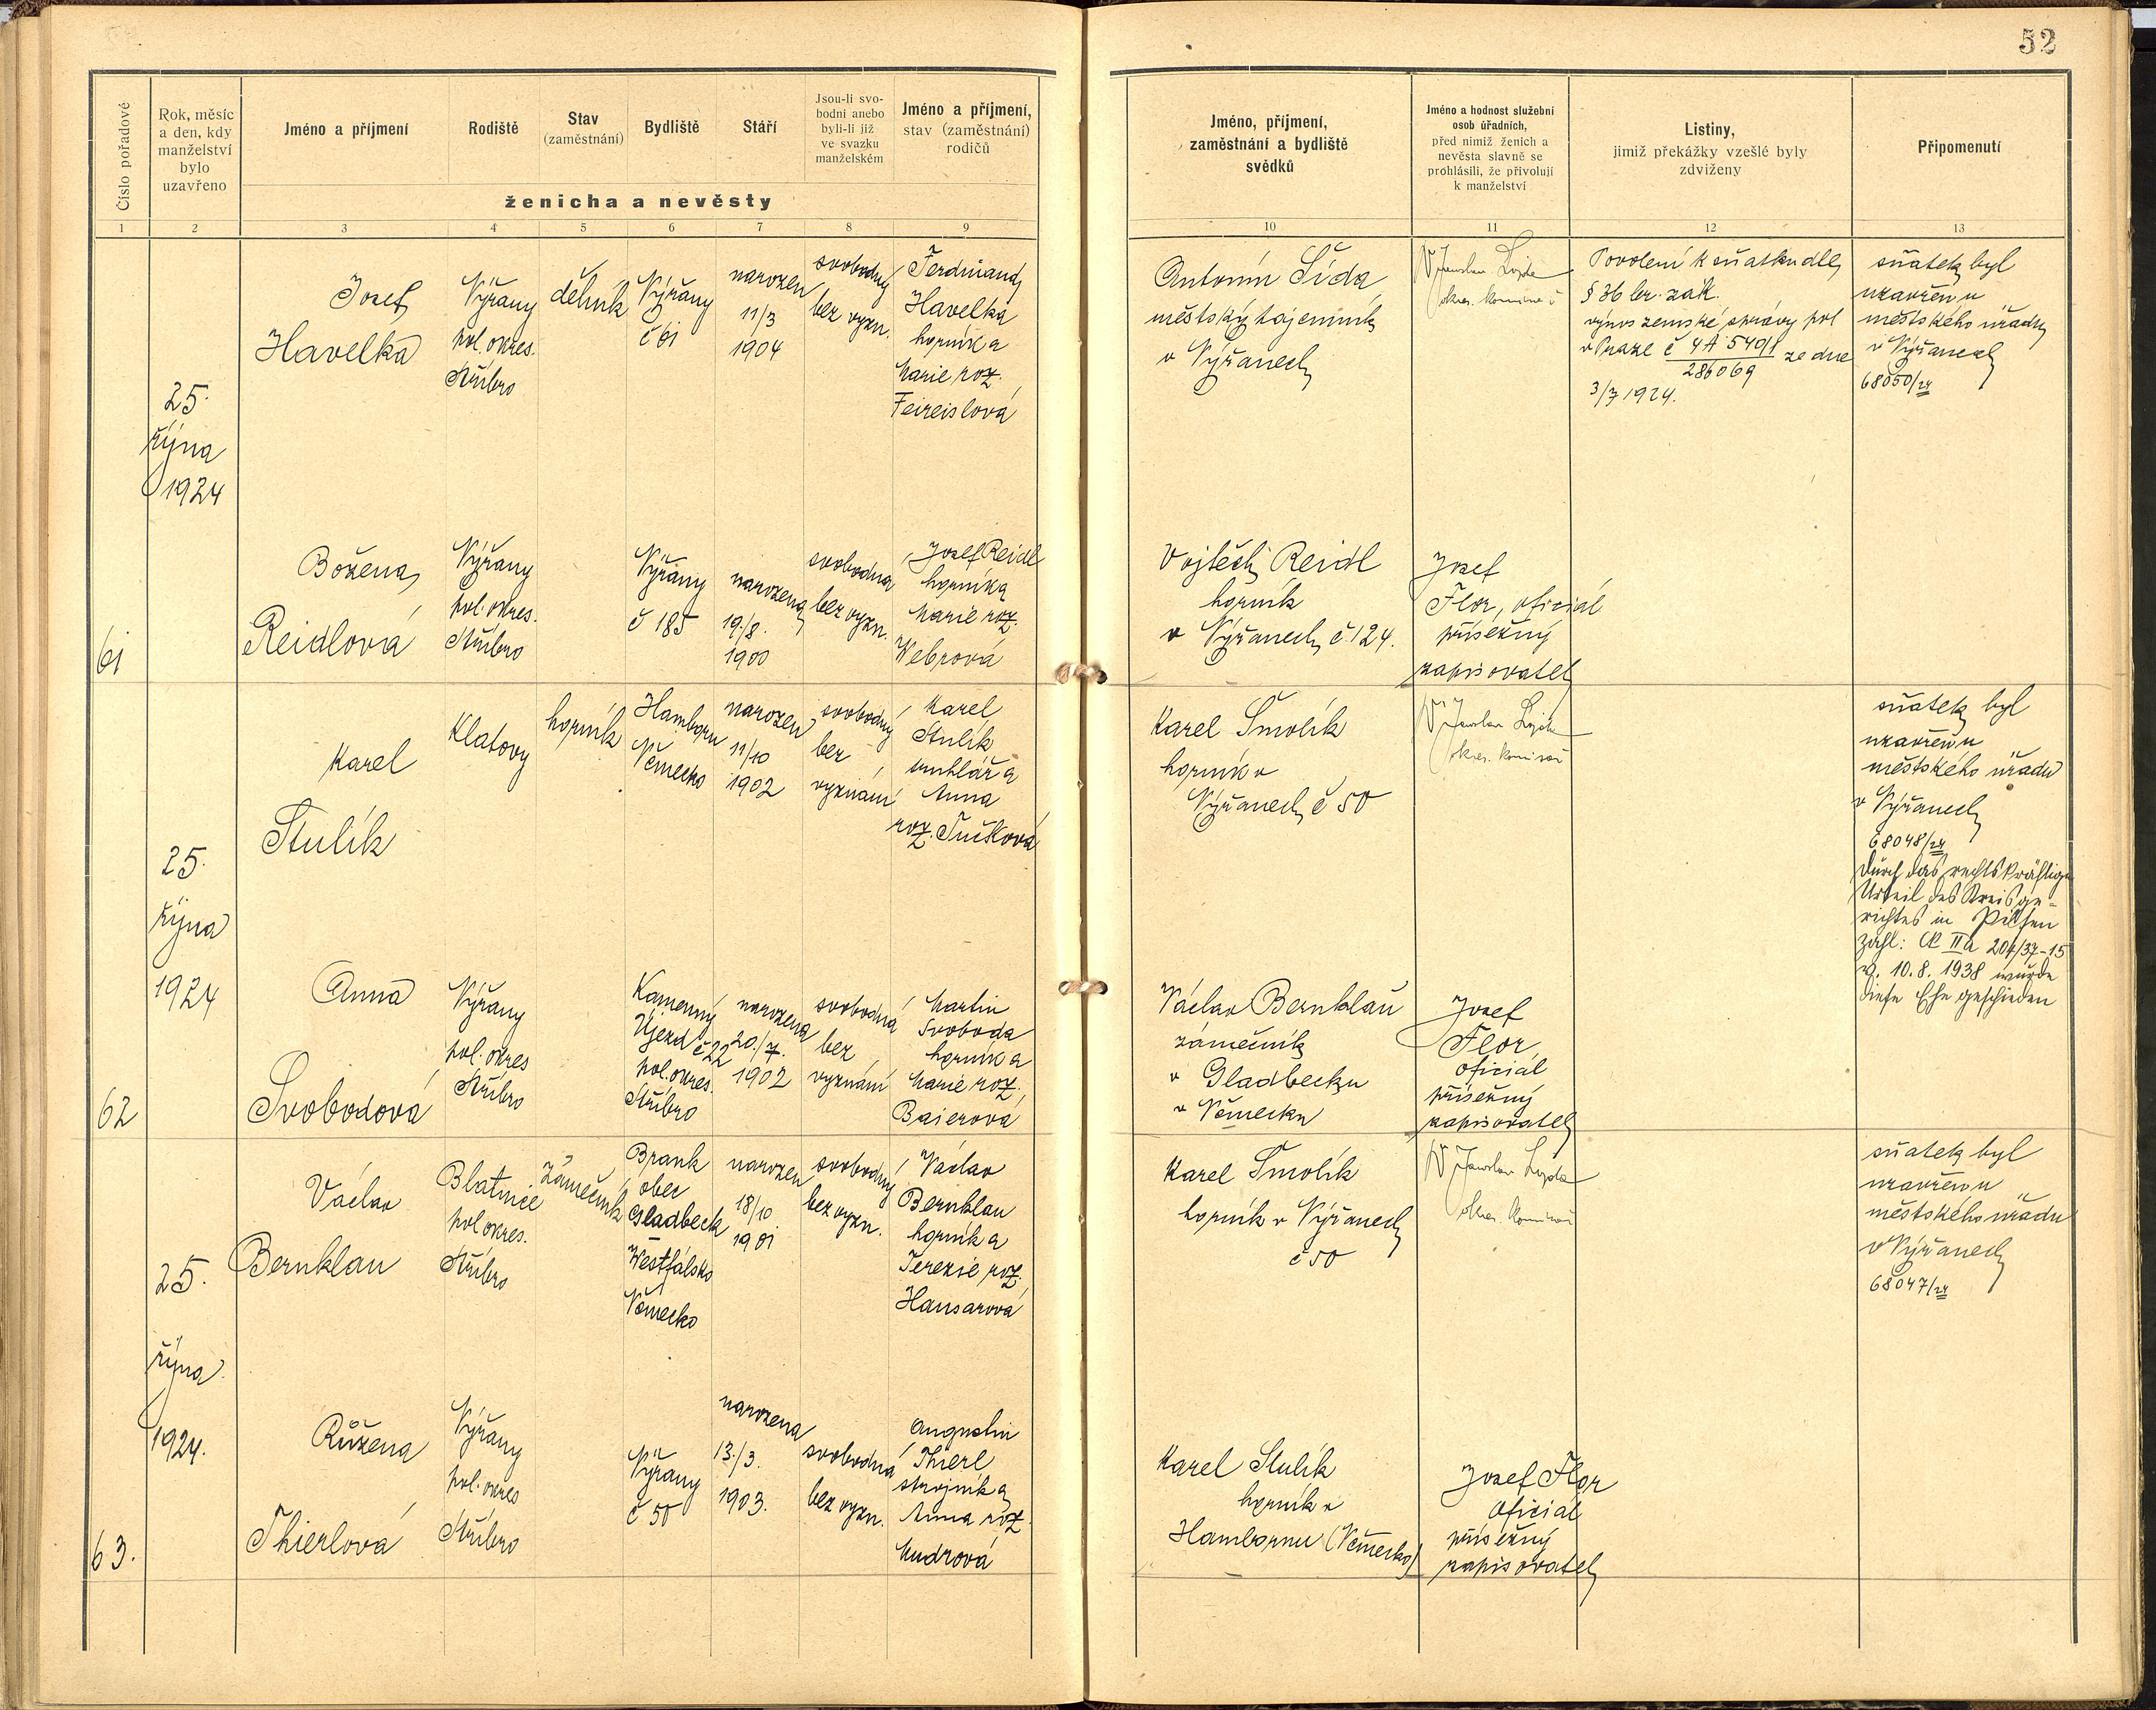 52
Číslo pořadové
Rok, měsíc
a den, kdy
manželství
bylo
uzavřeno
Jméno a příjmení
Rodiště
Stav
(zaměstnání)
Bydliště
Stáří
Jsou-li svo-
bodni anebo
byli-li již
ve svazku
manželském
Jméno a příjmení,
stav (zaměstnání)
rodičů
ženicha a nevěsty
Jméno, příjmení,
zaměstnání a bydliště
svědků
Jméno a hodnost služební
osob úřadních,
před nimiž ženich a
nevěsta slavně se
prohlásili, že přivolují
k manželství
Listiny,
jimiž překážky vzešlé byly
zdviženy
Připomenutí
1 2 3 4 5 6 7 8 9 10 11 12 13
61
25.
října
1924
Josef
Havelka
Výřany
pol. okres.
Stříbro
dělník
Výřany
č 61
narozen
11/3
1904
svobodný
bez vyzn.
Ferdinand
Havelka
horník a
Marie roz.
Feireislová
Antonín Šída
městský tajemník
v Výřanech
Jaroslav Lojda
okres. komisař
Povolení k sňatku dle
§ 36 br. zák.
výnos zemské správy pol
v Praze č 4A 5491/286069 ze dne
3/7 1924.
sňatek byl
uzavřen u
městského úřadu
v Výřanech
68050/24
Božena
Reidlová
Výřany
pol. okres.
Stříbro
Výřany
č 185
narozena
19./8.
1900
svobodna
bez vyzn.
Josef Reidl
horník a
Marie roz.
Webrová
Vojtěch Reidl
horník
v Výřanech č. 124.
Josef
Flor, oficiál
přísežný
zapisovatel
62
25.
října
1924
Karel
Stulík
Klatovy
horník
Hamborn
Německo
narozen
11/10
1902
svobodný
bez
vyznání
Karel
Stulík
truhlář a
Anna
Karel Smolík
horník v
Výřanech č 50
Jaroslav Lojda
okres. komisař
sňatek byl
uzavřen u
městského úřadu
v Výřanech
68048/24
Durch das rechtskräftige
Urteil des Kreisge-
richtes in Pilsen
Zahl: Ck IIa 204/37-15
v. 10. 8. 1938 wurde
diese Ehe geschieden
Anna
Svobodová
Výřany
pol. okres
Stříbro
Kamenný
Újezd č 22
pol. okres.
Stříbro
narozena
20./7.
1902
svobodná
bez
vyznání
Martin
Svoboda
horník a
Marie roz.
Baierová
Václav Bernklau
zámečník
v Gladbecku
v Německu
Josef
Flor
oficiál
přísežný
zapisovatel
63.
25.
října
1924.
Václav
Bernklau
Blatnice
pol okres.
Stříbro
Zámečník
Brauk
obec
Gladbeck
Westfálsko
Německo
narozen
18/10
1901
svobodný
bez vyzn.
Václav
Bernklau
horník a
Terezie roz.
Hansarová
Karel Smolík
horník v Výřanech
č 50
Jaroslav Lojda
okres. komisař
sňatek byl
uzavřen u
městského úřadu
v Výřanech
68047/24
Růžena
Thierlová
Výřany
pol. okres
Stříbro
Výřany
č 50
narozena
13./3.
1903.
svobodná
bez vyzn.
Augustin
Thierl
strojník a
Anna roz.
Mudrová
Karel Stulík
horník v
Hambornu (Německo)
Josef Flor
oficiál
přísežný
zapisovatel